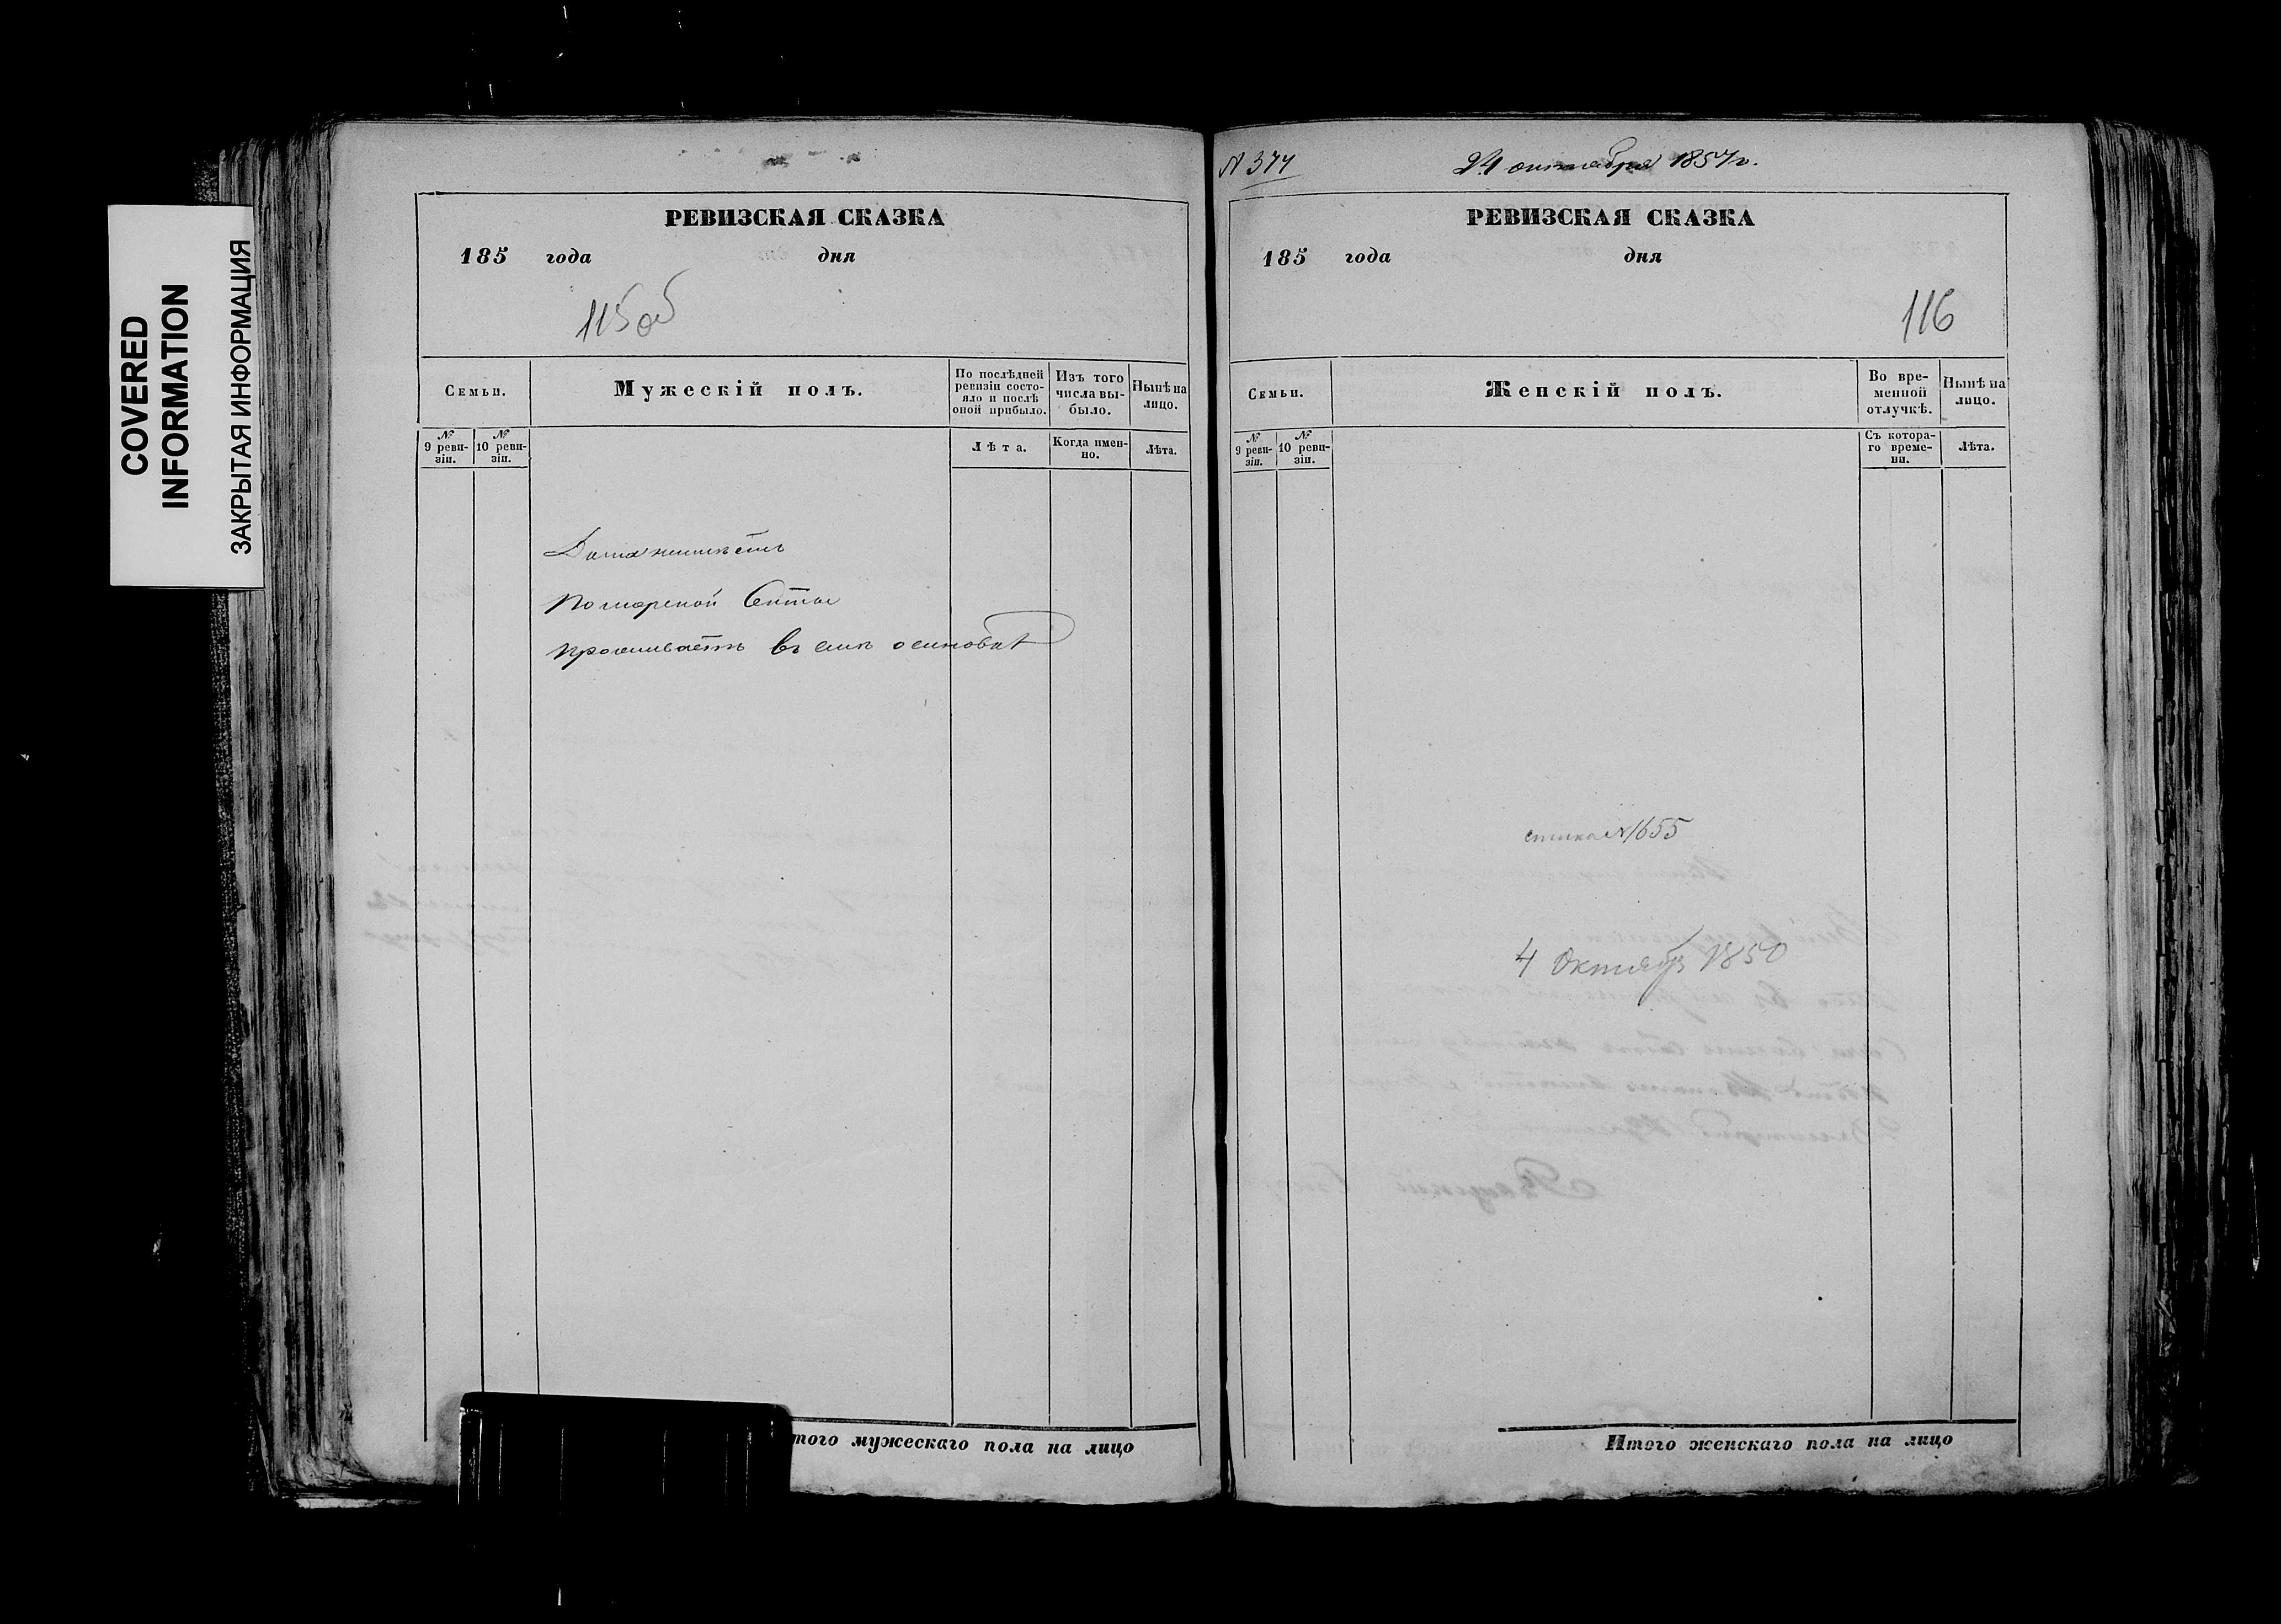 COVERED
INFORMATION
ЗАКРЫТАЯ ИНФОРМАЦИЯ
РЕВИЗСКАЯ СКАЗКА
185 года дня
115 об
Семьи.
Мужескій полъ.
По послѣдней ревизіи состо-
яло и послѣ оной прибыло.
Изъ того числа вы-
было.
Нынѣ на лицо.
№ 9 реви-
зіи.
№ 10 реви-
зіи.
Лѣта.
Когда имен-
но.
Лѣта.
Поморской Секты
проживаетъ въ
того мужескаго пола на лицо
N 374
24 октября 1857 г.
РЕВИЗСКАЯ СКАЗКА
185 года дня
116
Семьи.
Женскій полъ.
Во вре-
менной
отлучкѣ.
Нынѣ на
лицо.
№ 9 реви-
зіи.
№ 10 реви-
зіи.
Съ котора-
го време-
ни.
Лѣта.
N 1655
4 Октябр 1850
Итого женскаго пола на лицо